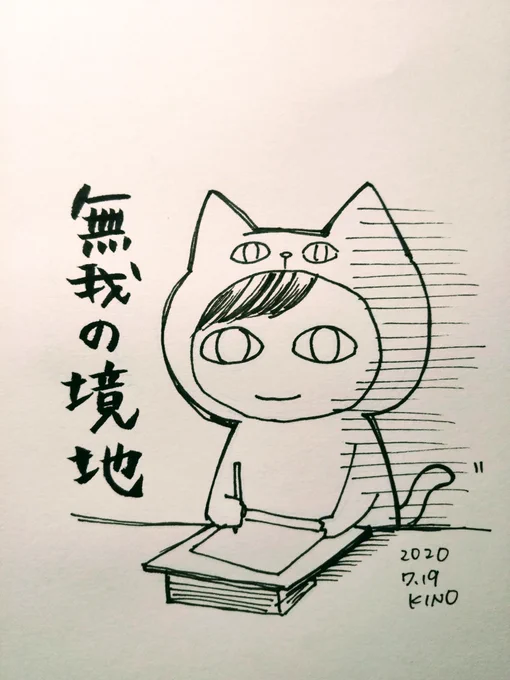 無我の境地
2020
7.19
KINO